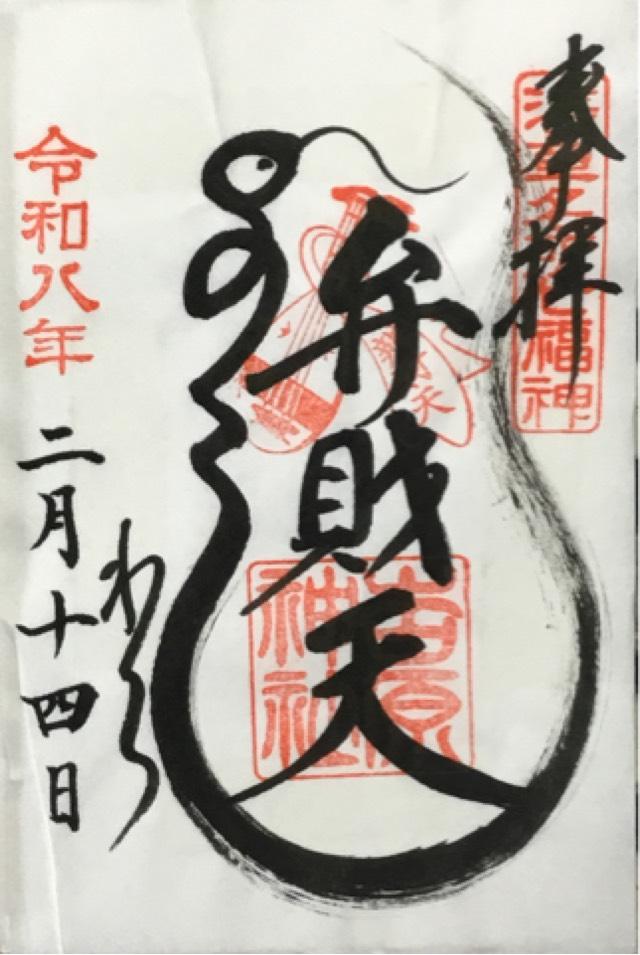 奉拝
浅草名所七福神
弁財天
弁財天
吉原
神社
令和八年
二月十四日